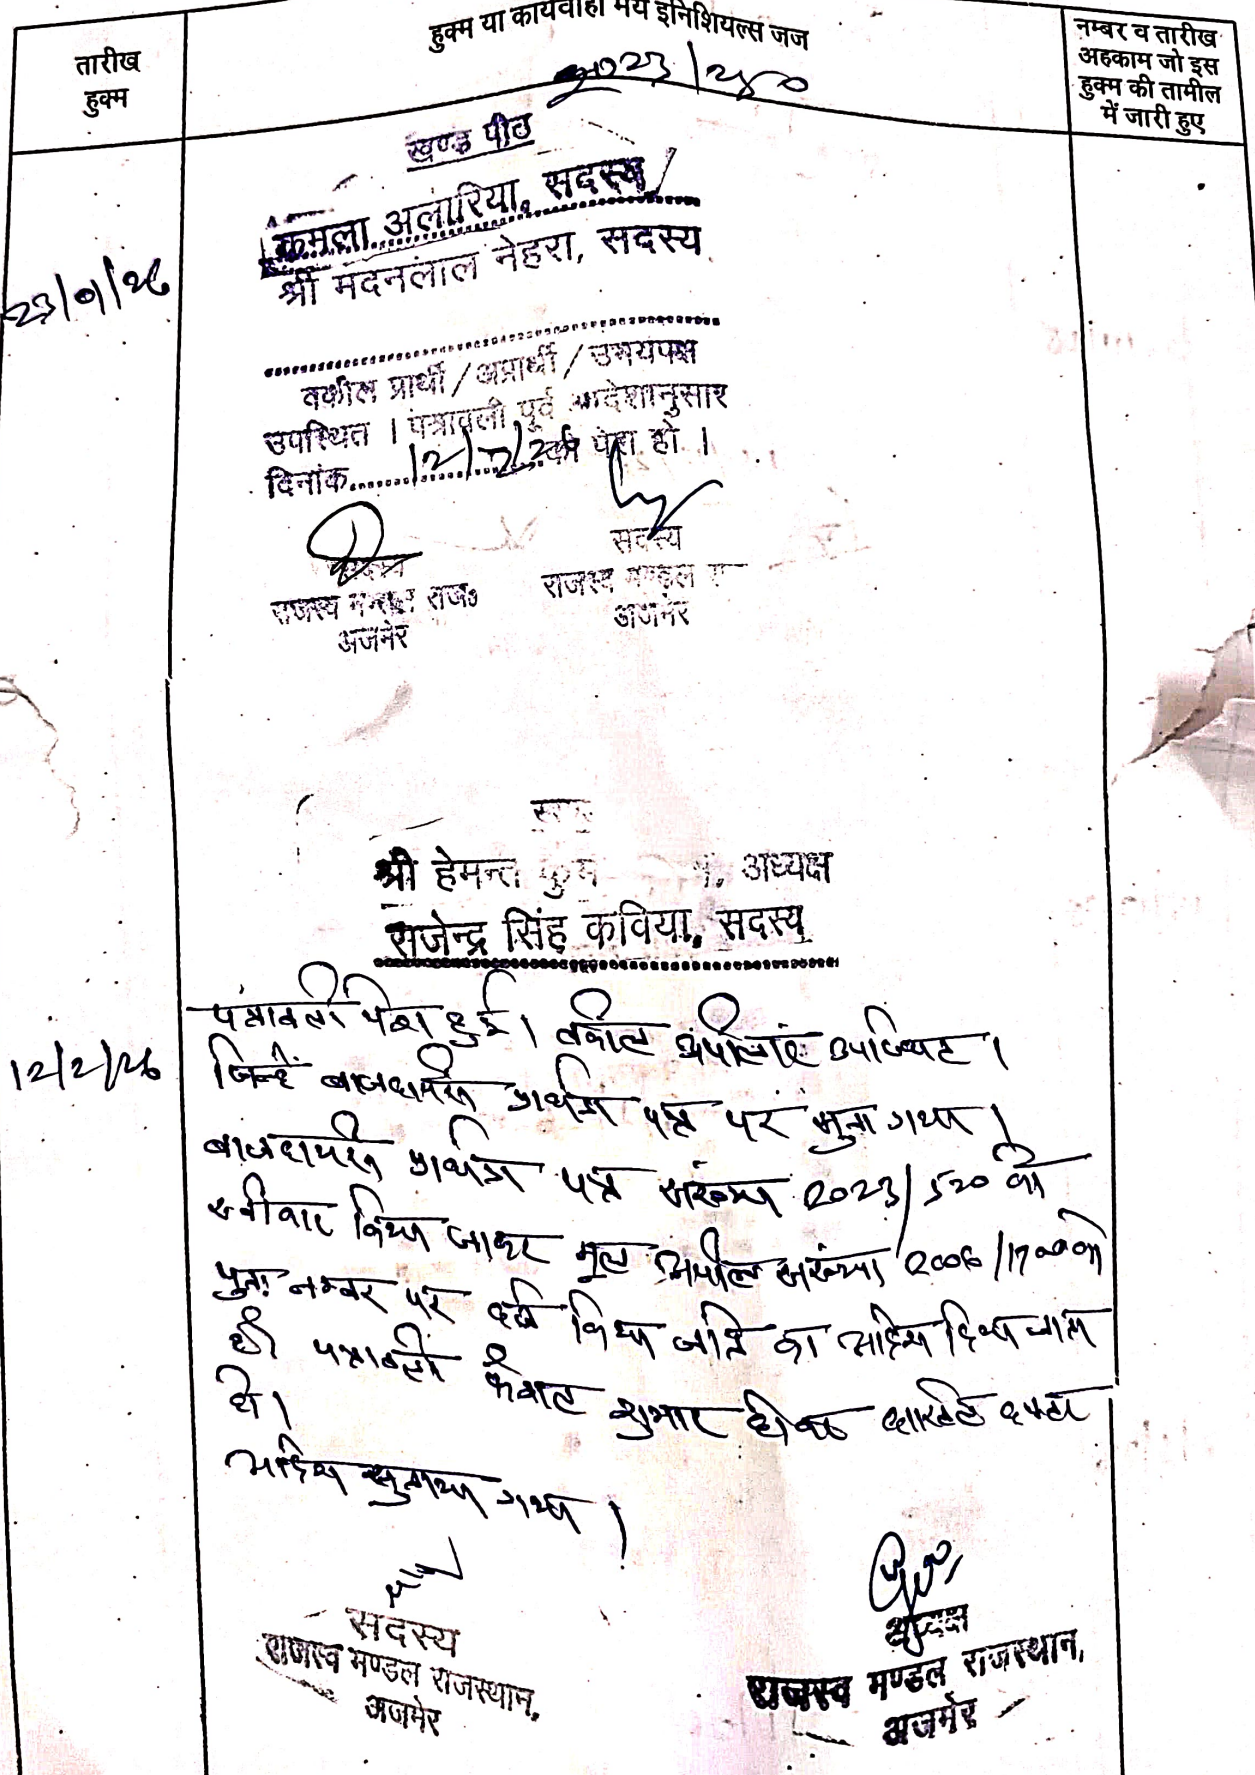 तारीख
हुक्म
हुक्म या कार्यवाही मय इनिशियल्स जज
नम्बर व तारीख
अहकाम जो इस
हुक्म की तामील
में जारी हुए
खण्ड पीठ
कमला अलारिया, सदस्य
श्री मदनलाल नेहरा, सदस्य
23/01/26
वकील प्रार्थी / अप्रार्थी / उभयपक्ष
उपस्थित । पत्रावली पूर्व आदेशानुसार
दिनांक 12/2/26 को पेश हो ।
सदस्य
राजस्व मण्डल राज०
अजमेर
सदस्य
राजस्व मण्डल
अजमेर
श्री हेमन्त अध्यक्ष
राजेन्द्र सिंह कविया, सदस्य
12/2/26
पत्रावली पेश हुई। वकील अपीलांट उपस्थित ।
जिन्हें बाजदायरी प्रार्थना पत्र पर सुना गया ।
बाजदायरी प्रार्थना पत्र संख्या 2023/520 को
स्वीकार किया जाकर मूल अपील संख्या 2006/ को
पुनः नम्बर पर दर्ज किया जाने का आदेश दिया जाता
है। पत्रावली फैसल शुमार होकर दाखिल दफ्तर
हो।
आदेश सुनाया गया ।
सदस्य
राजस्व मण्डल राजस्थान,
अजमेर
अध्यक्ष
राजस्व मण्डल राजस्थान,
अजमेर